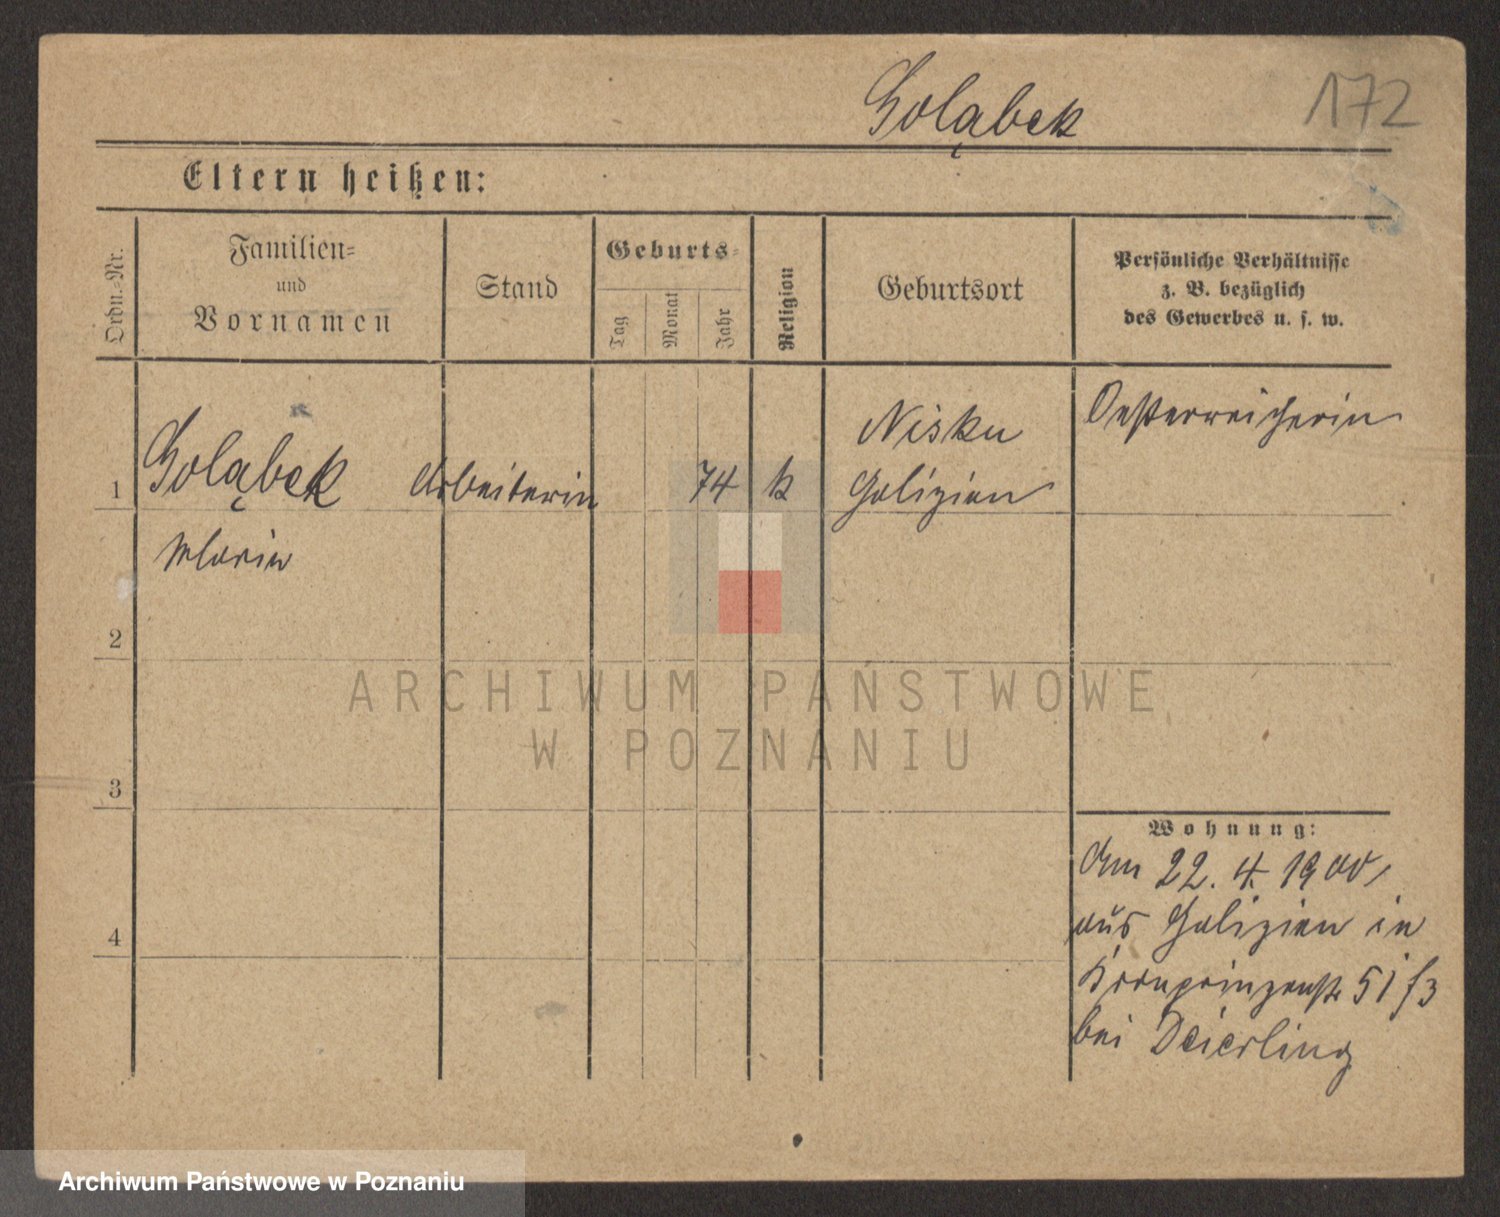 Goląbek
172
Eltern heißen:
Ordn.-Nr.
Familien-
und
Vornamen
Stand
Geburts-
Tag
Monat
Jahr
Religion
Geburtsort
Persönliche Verhältnisse
z. B. bezüglich
des Gewerbes u. s. w.
1
Goląbek
Arbeiterin
74
k
Nisku
Galizien
Oesterreicherin
Maria
2
ARCHIWUM PAŃSTWOWE
W POZNANIU
3
Wohnung:
Am 22. 4. 1900
aus Galizien in
Kronprinzenstr 51 f3
bei Deierling
4
Archiwum Państwowe w Poznaniu